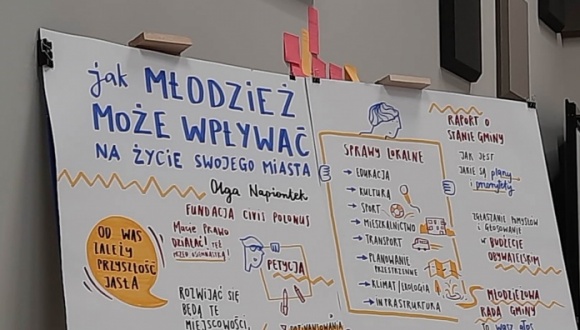 jak MŁODZIEŻ
MOŻE WPŁYWAĆ
NA ŻYCIE SWOJEGO MIASTA
Olga Napiontek
FUNDACJA CIVIS POLONUS
OD WAS
ZALEŻY
PRZYSZŁOŚĆ
JASŁA
Macie PRAWO
DZIAŁAĆ! TEŻ
PRZED OSIEMNASTKĄ!
PETYCJA
ROZWIJAĆ SIĘ
BĘDĄ TE
MIEJSCOWOŚCI,
SPRAWY LOKALNE
→ EDUKACJA
→ KULTURA
→ SPORT
→ MIESZKALNICTWO
→ TRANSPORT
→ PLANOWANIE
PRZESTRZENNE
→ KLIMAT/EKOLOGIA
→ INFRASTRUKTURA
RAPORT O
STANIE GMINY
JAK JEST
JAKIE SĄ plany
i priorytety
ZGŁASZANIE POMYSŁÓW
i GŁOSOWANIE
W BUDŻECIE
OBYWATELSKIM
MŁODZIEŻOWA
RADA GMINY